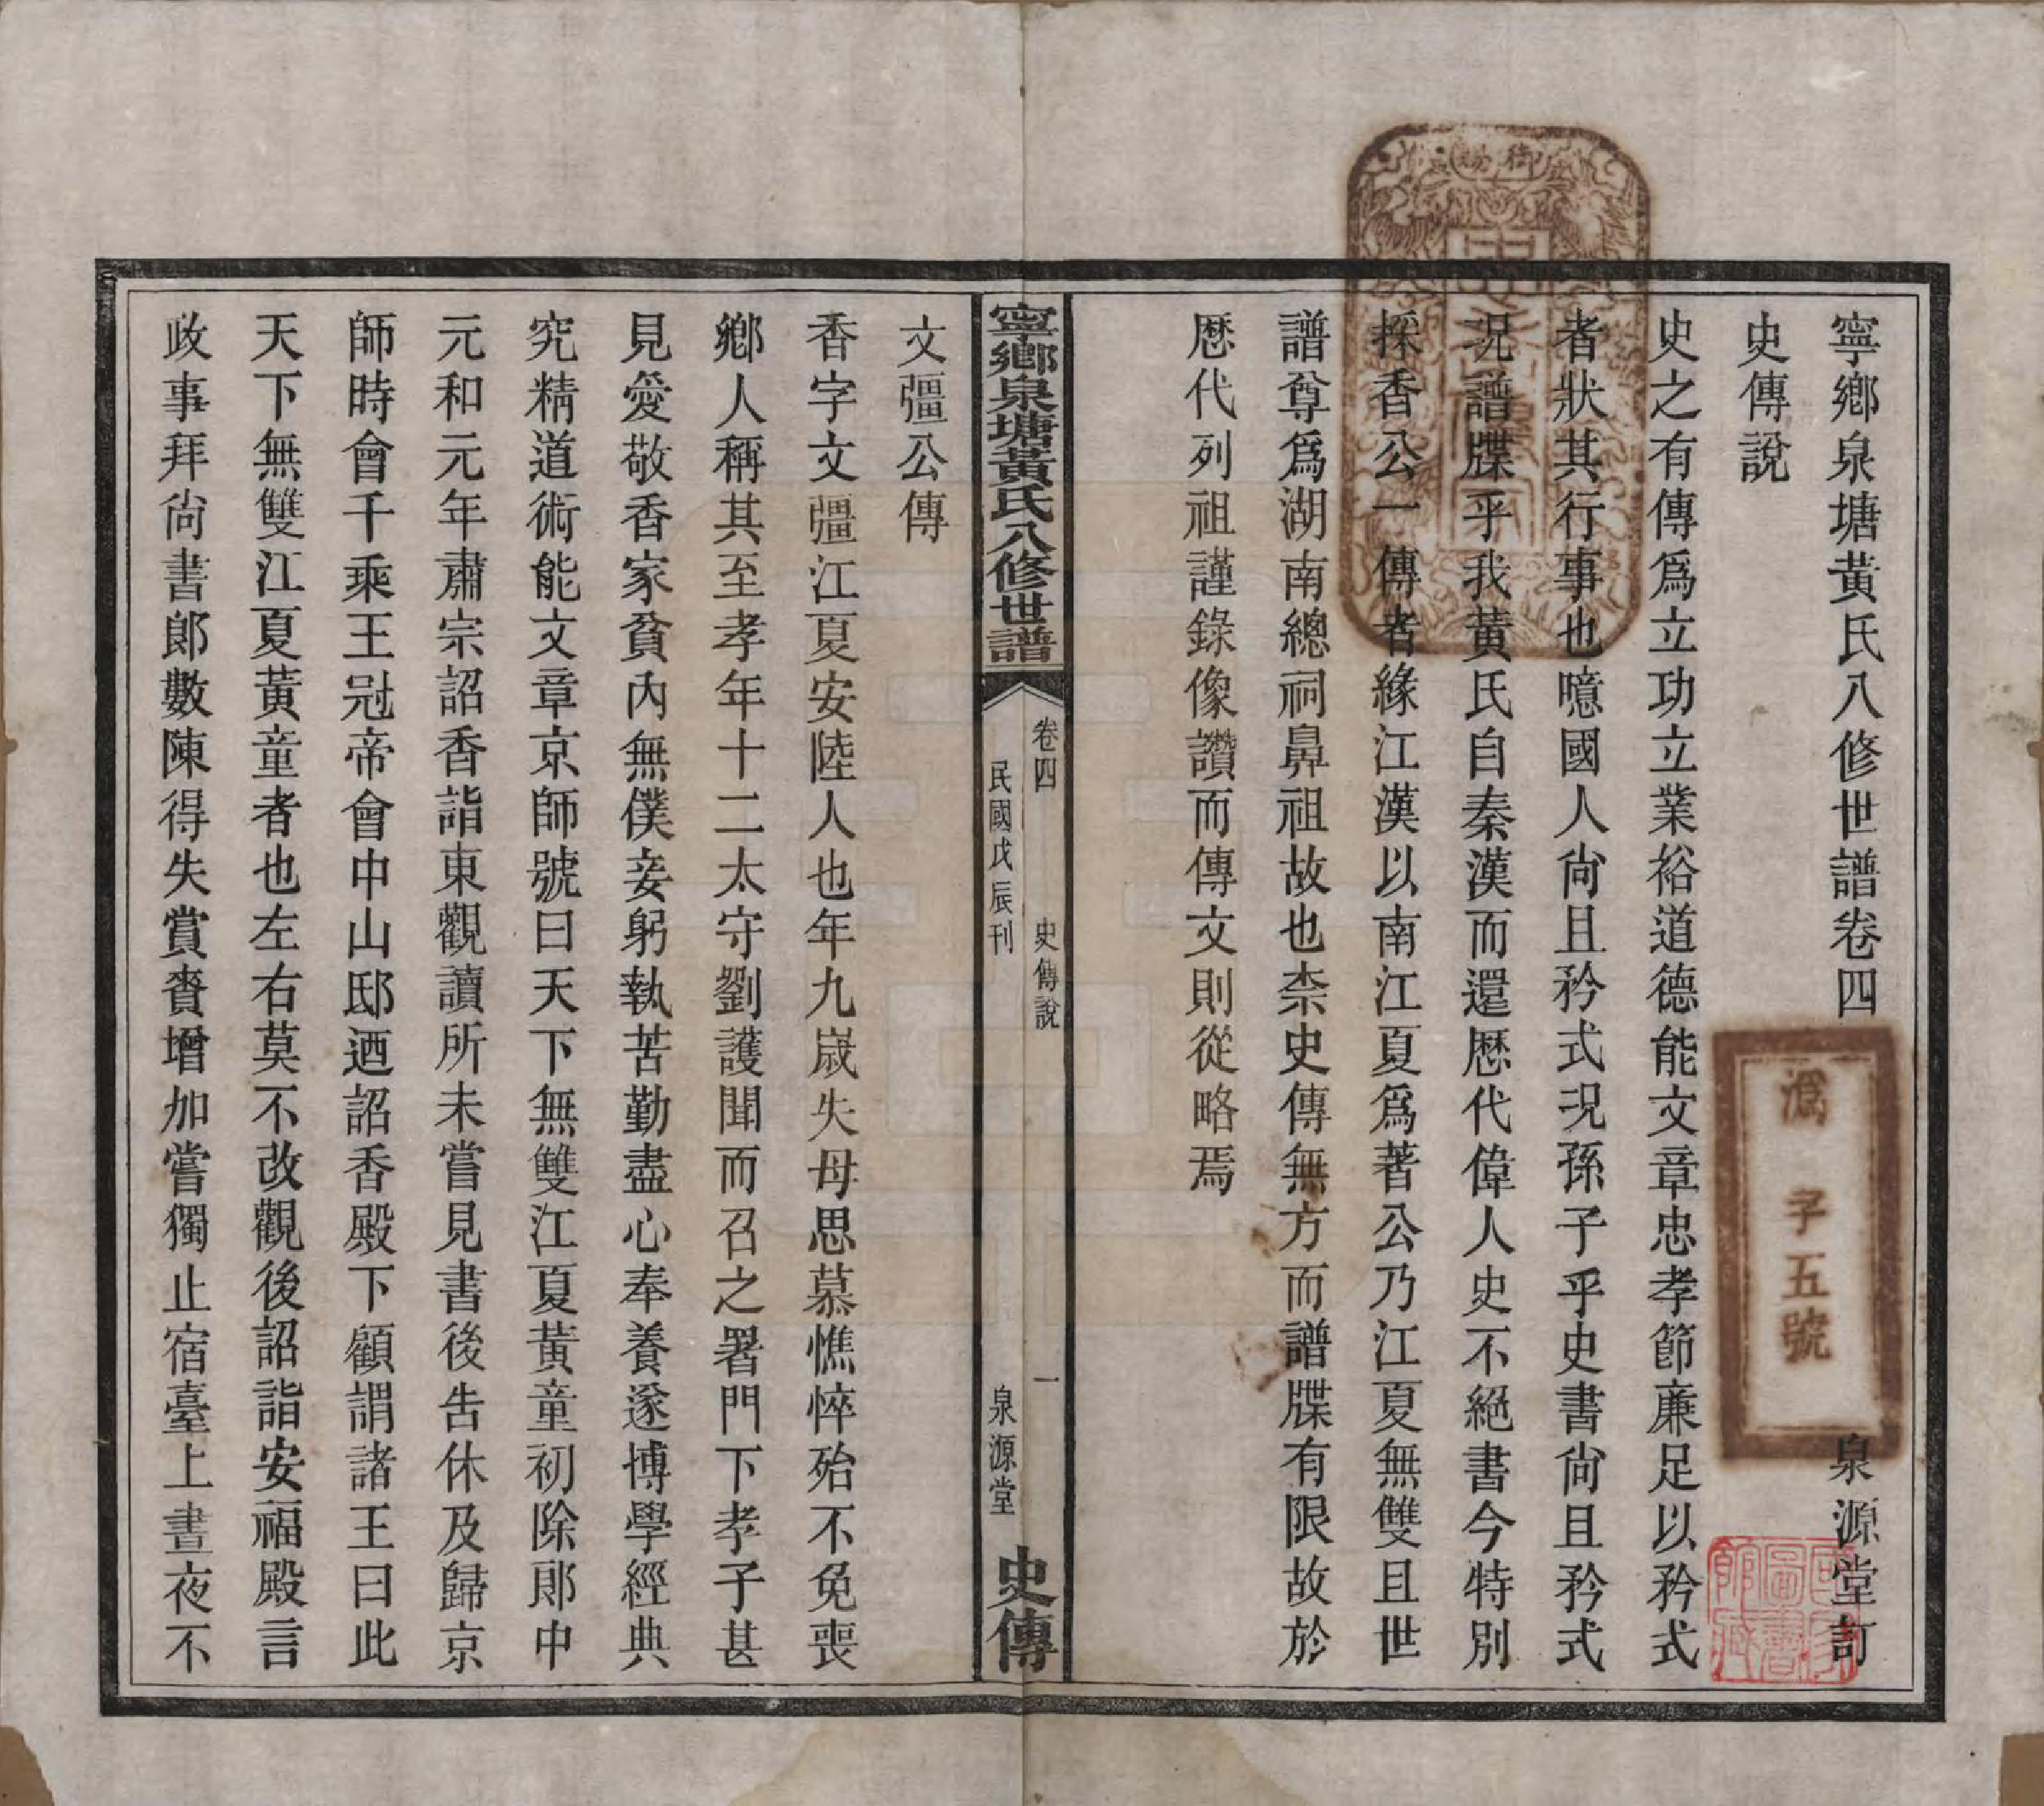 寧鄉泉塘黃氏八修世譜卷四
泉源堂訂
史傳說
史之有傳爲立功立業裕道德能文章忠孝節廉足以矜式
者狀其行事也噫國人尙且矜式況孫子乎史書尙且矜式
況譜牒乎我黃氏自秦漢而還歷代偉人史不絕書今特別
採香公一傳者緣江漢以南江夏爲著公乃江夏無雙且世
譜尊爲湖南總祠鼻祖故也柰史傳無方而譜牒有限故於
歷代列祖謹錄像讚而傳文則從略焉
寧鄉泉塘黃氏八修世譜
卷四
史傳說
一
民國戊辰刊
泉源堂
史傳
文彊公傳
香字文彊江夏安陸人也年九歲失母思慕憔悴殆不免喪
鄉人稱其至孝年十二太守劉護聞而召之署門下孝子甚
見愛敬香家貧內無僕妾躬執苦勤盡心奉養遂博學經典
究精道術能文章京師號曰天下無雙江夏黃童初除郞中
元和元年肅宗詔香詣東觀讀所未嘗見書後告休及歸京
師時會千乘王冠帝會中山邸迺詔香殿下顧謂諸王曰此
天下無雙江夏黃童者也左右莫不改觀後詔詣安福殿言
政事拜尙書郞數陳得失賞賚增加嘗獨止宿臺上晝夜不
御賜
子五號